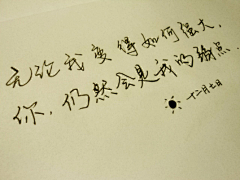 无论我变得如何强大，
你，仍然会是我的弱点
十二月七日